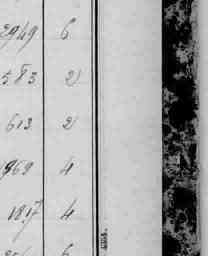 2949 6
583 2
613 2
969 4
1817 4